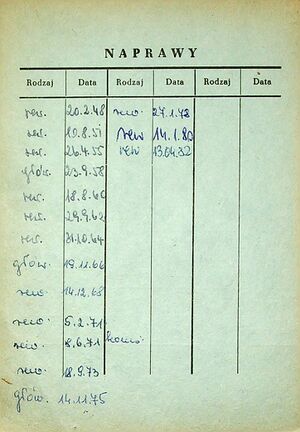 NAPRAWY
Rodzaj Data Rodzaj Data Rodzaj Data
rew. 20.2.48 rew. 27.1.78
rew. 10.8.51 rew 14.1.80
rew. 26.4.55 rew 13.04.82
głów. 23.9.58
rew. 18.8.60
rew. 29.9.62
rew. 31.10.64
głów. 19.11.66
rew 14.12.68
rew. 5.2.71
rew. 8.6.71
rew. 18.9.73
głów. 14.11.75